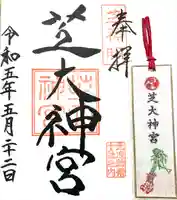 奉拝
芝大神宮
令和五年五月二十二日
芝大神宮